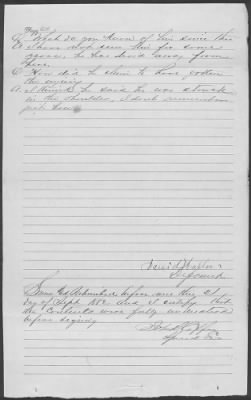 Q What do you know of him since then
A I have not seen him for some
years, he has lived away from
here.
Q How did he claim to have gotten
the injury
A. I think he said he was struck
in the shoulder, I don't remember
just how
David
Deponent
Sworn and subscribed before me this 21
day of Sept 1882 and I certify that
the contents were fully
before signing
Special Ex